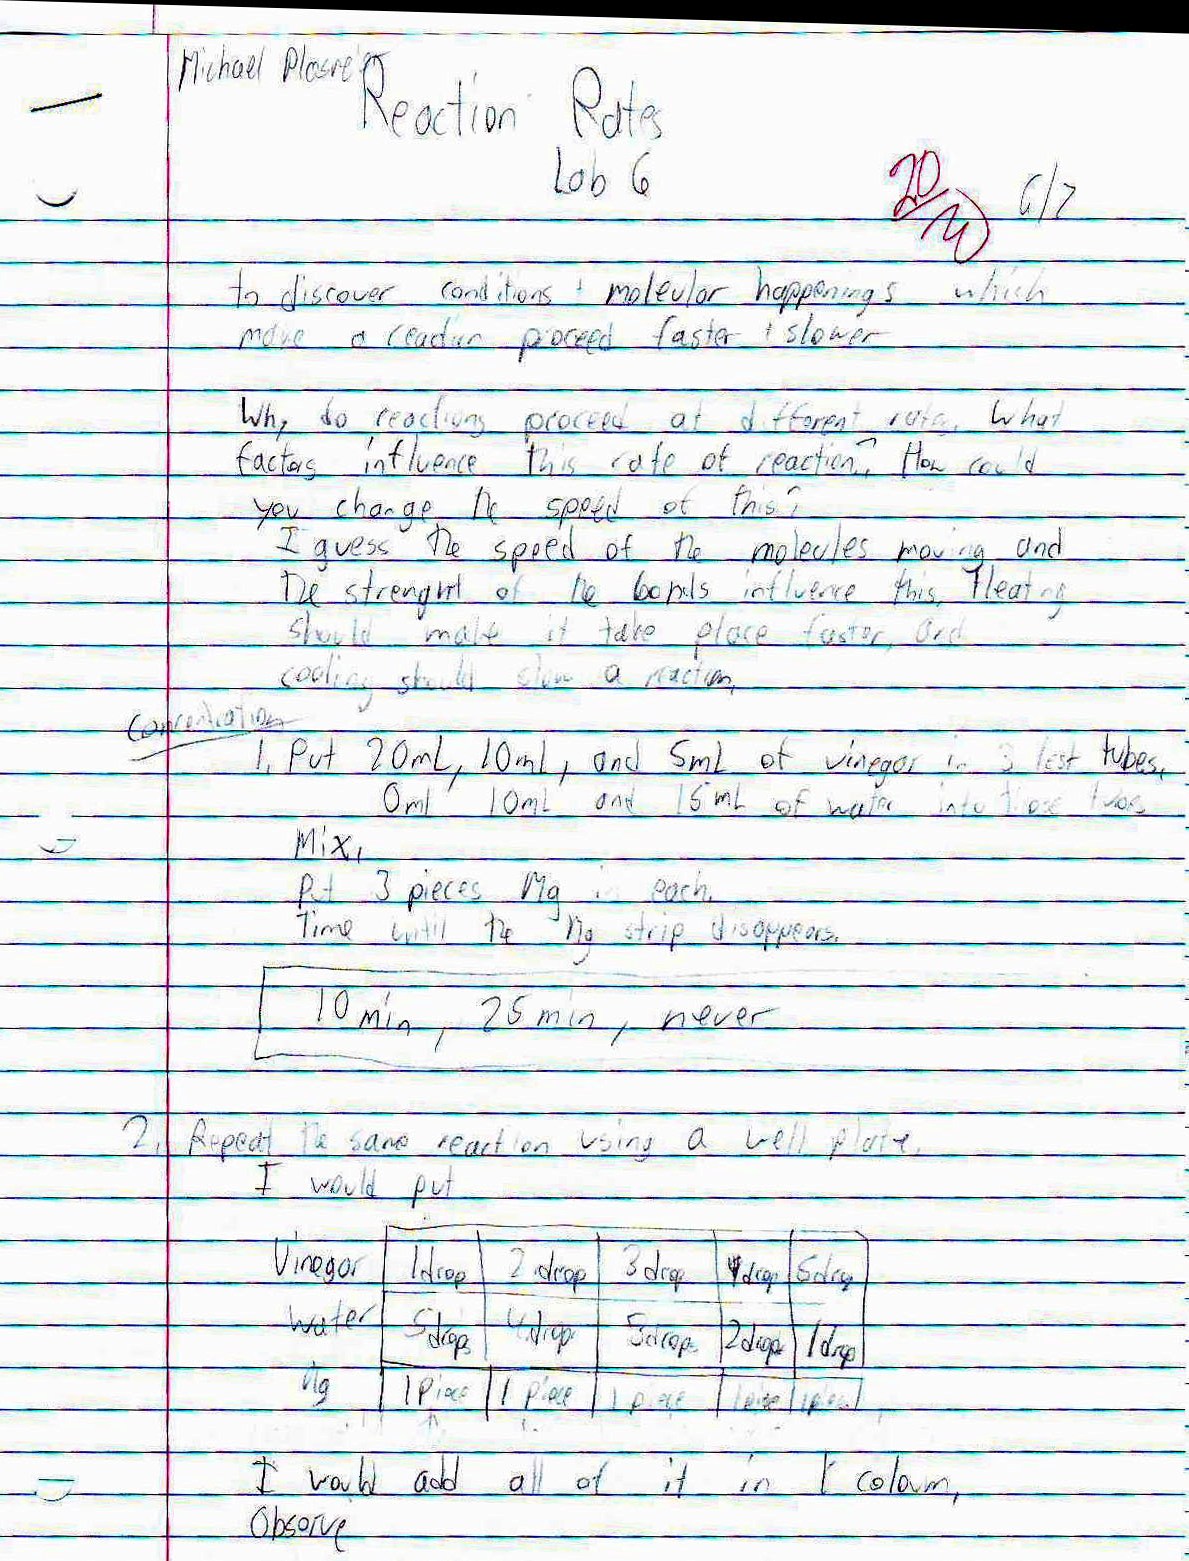 Michael Plasmeier
Reaction Rates
Lab 6
20/20 6/7
to discover conditions + molecular happenings which
make a reaction proceed faster + slower
Why do reactions proceed at different rates. What
factors influence this rate of reaction? How could
you change the speed of this?
I guess the speed of the molecules moving and
the strenght of the bonds influence this. Heating
should make it take place faster, and
cooling should slow a reaction.
Concentration
1. Put 20mL, 10mL, and 5mL of vinegar in 3 test tubes.
0ml 10mL and 15mL of water into those tubes
Mix.
Put 3 pieces Mg in each.
Time until the Mg strip disappears.
10 min, 25 min, never
2. Repeat the same reaction using a well plate.
I would put
Vinegar 1 drop 2 drop 3 drop 4 drop 5 drop
Water 5 drops 4 drop 3 drops 2 drops 1 drop
Mg 1 Piece 1 piece 1 piece 1 piece 1 piece
I would add all of it in 1 coloum.
Observe